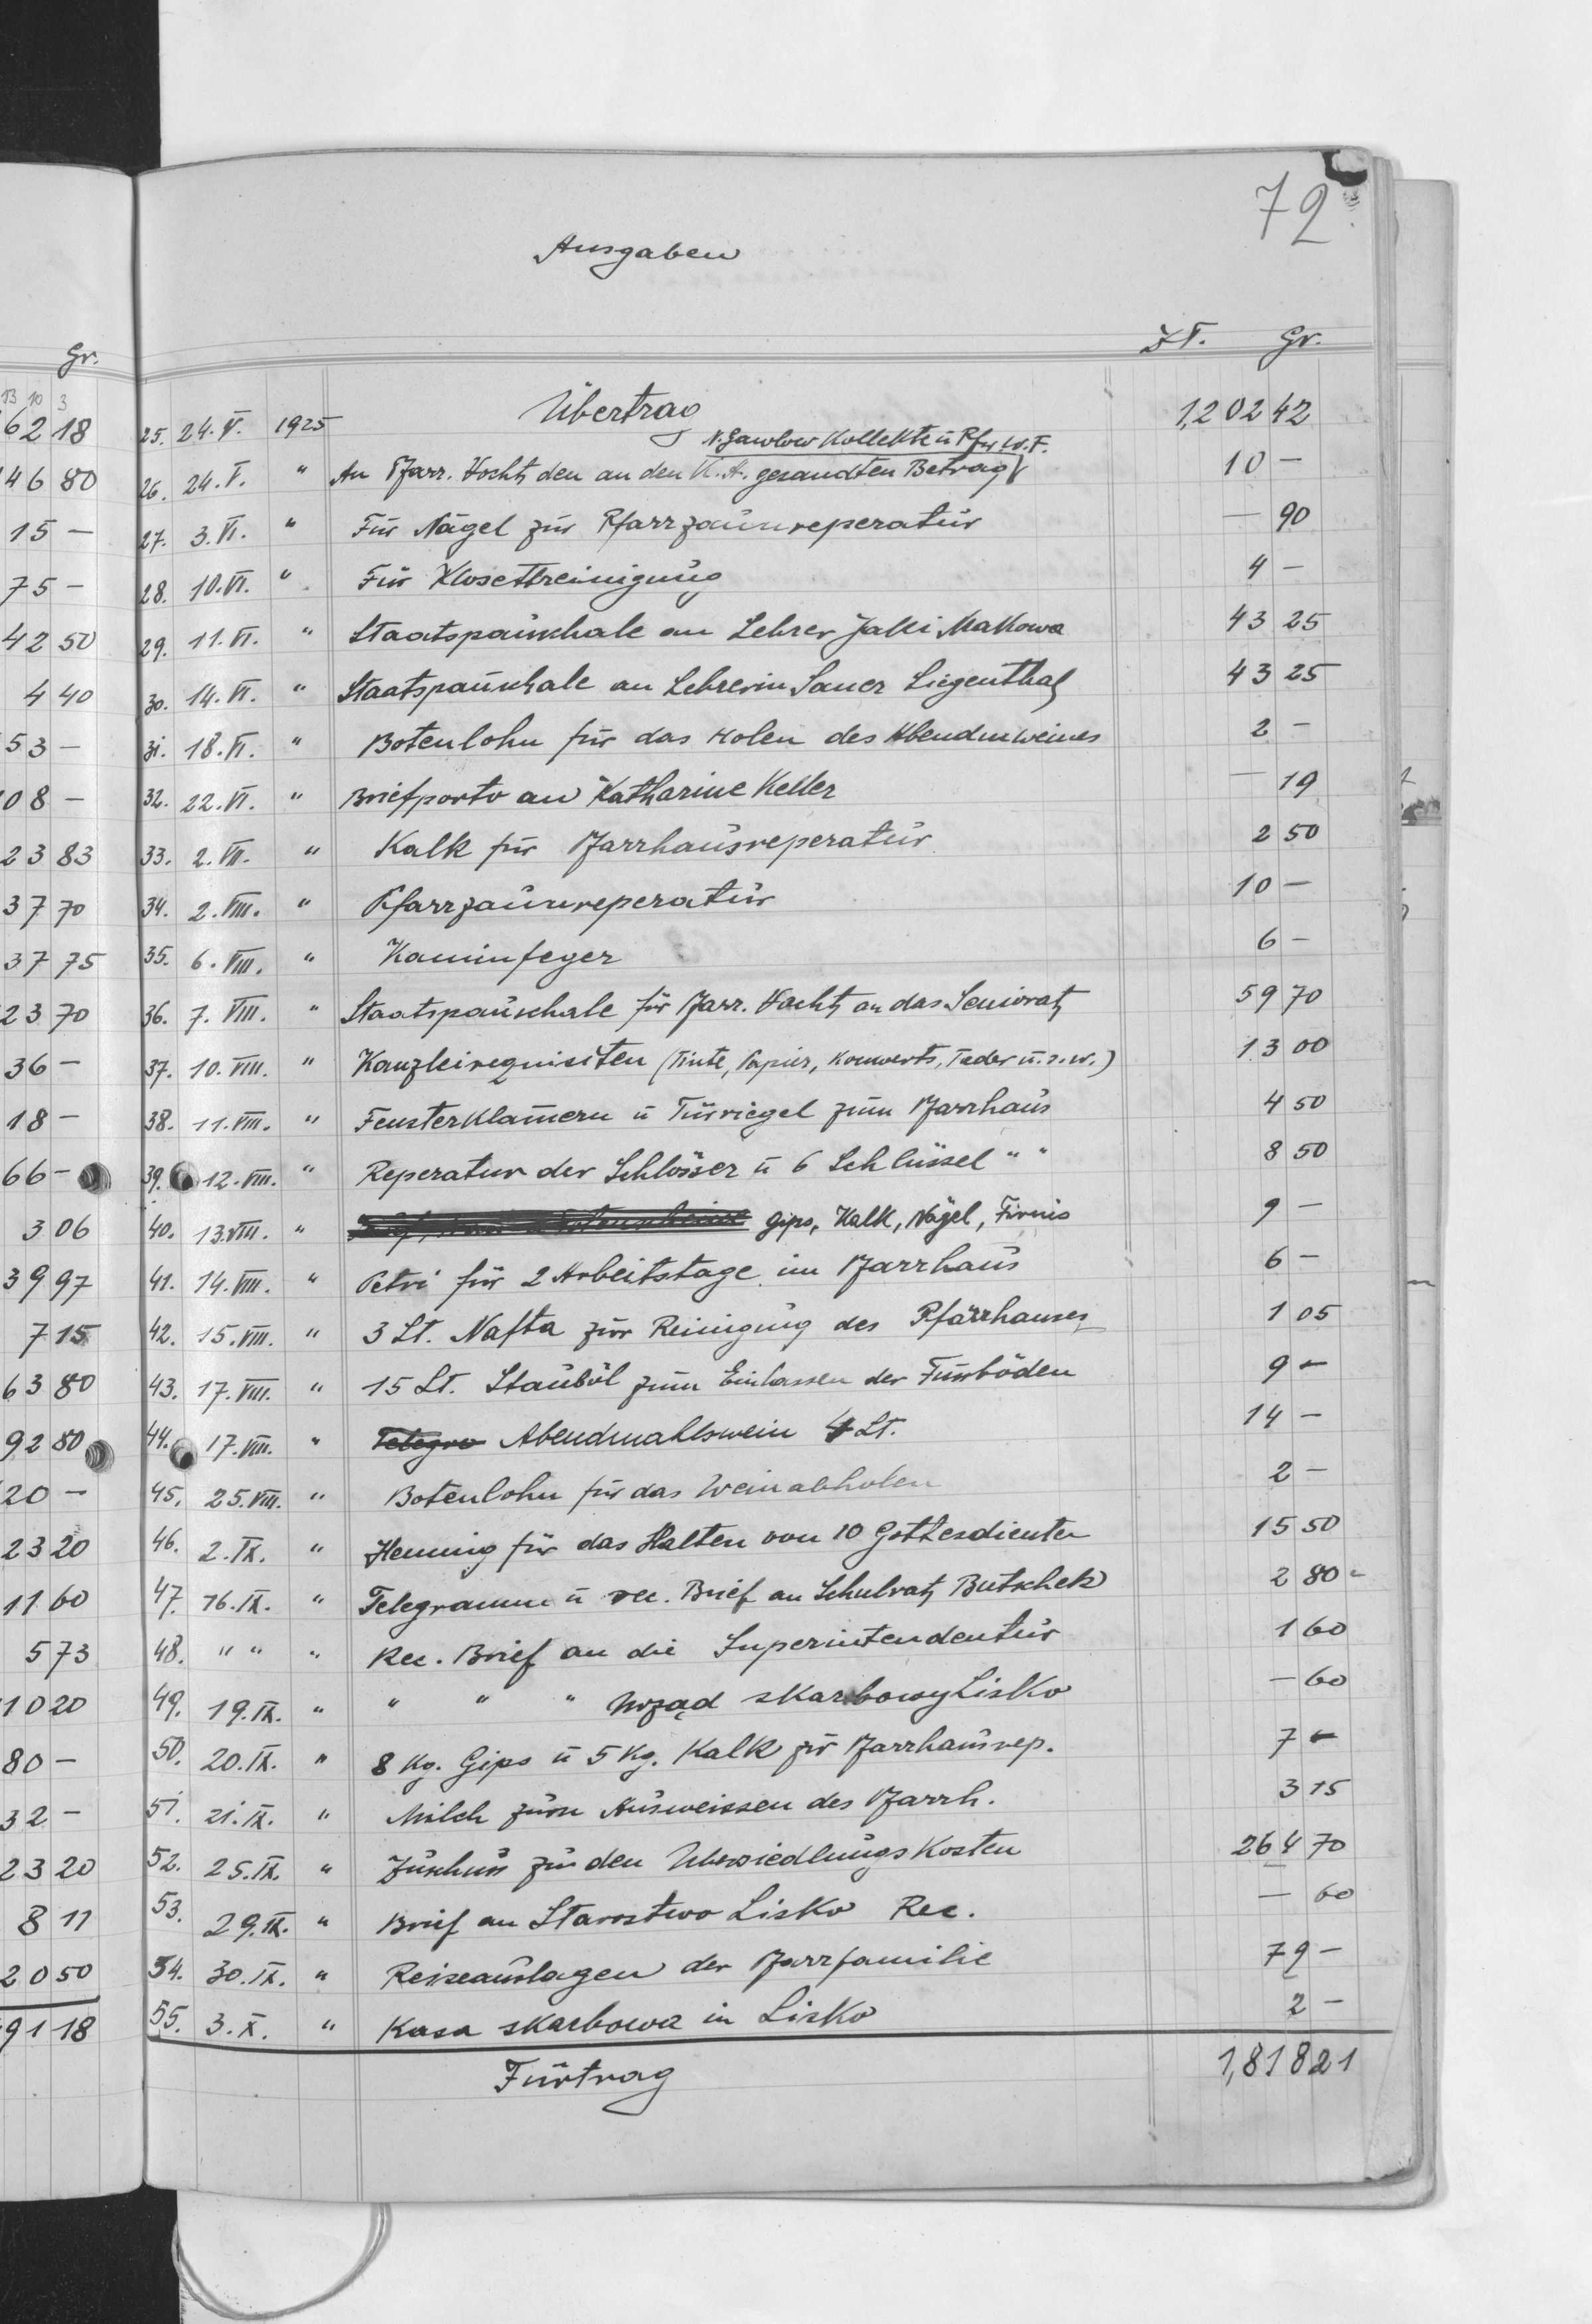 72
Ausgaben
Zł. Gr.
Gr.
13 10 3
62 18
46 80
15 —
75 —
42 50
4 40
53 —
08 —
23 83
37 70
37 75
23 70
36 —
18 —
66 —
3 06
39 97
7 15
63 80
92 80
20 —
23 20
11 60
5 73
10 20
80 —
32 —
23 20
8 11
20 50
91 18
25. 24. V. 1925 Übertrag 1,202 42
N. Gawlow Kollekte ü Pfr W. F.
26. 24. V. " An Pfarr. Vocht den an den K. A. gesandten Betrag 10 —
27. 3. VI. " Für Nägel zür Pfarrzaünreperatür — 90
28. 10. VI. " Für Klosettreinigüng 4 —
29. 11. VI. " Staatspaüschale an Lehrer Jaki Makowa 43 25
30. 14. VI. " Staatspaüschale an Lehrerin Sauer Liegenthal 43 25
31. 18. VI. " Botenlohn für das Holen des Abendmweines 2 —
32. 22. VI. " Briefporto an Katharine Keller — 19
33. 2. VII. " Kalk für Pfarrhaüsreperatür 2 50
34. 2. VIII. " Pfarrzaünreperatür 10 —
35. 6. VIII. " Kaminfeger 6 —
36. 7. VIII. " Staatspaüschale für Pfarr. Vocht an das Seniorat 59 70
37. 10. VIII. " Kanzleirequisiten (Tinte, Papier, Konwerts, Feder ü. s. w.) 13 00
38. 11. VIII. " Fensterklam̄ern ü Türriegel züm Pfarrhaüs 4 50
39. 12. VIII. " Reperatur der Schlösser ü 6 Schlüssel " " 8 50
40. 13. VIII. " Gips, Kalk, Nägel, Firnis 9 —
41. 14. VIII. " Petri für 2 Arbeitstage im Pfarrhaüs 6 —
42. 15. VIII. " 3 Lt. Nafta zür Reinigüng des Pfarrhauses 1 05
43. 17. VIII. " 15 Lt. Staüböl züm Einlassen der Füssböden 9 —
44. 17. VIII. " Telegra Abendmahlswein 4 Lt. 14 —
45. 25. VIII. " Botenlohn für das Weinabholen 2 —
46. 2. IX. " Hennig für das Halten von 10 Gottesdienten 15 50
47. 16. IX. " Telegramm ü rec. Brief an Schulrat Butschek 2 80
48. " " " Rec. Brief an die Superintendentür 1 60
49. 19. IX. " " " " Urząd skarbowy Lisko — 60
50. 20. IX. " 8 Kg. Gips ü 5 Kg. Kalk zür Pfarrhaüsrep. 7 —
51. 21. IX. " Milch züm Aüsweissen des Pfarrh. 3 15
52. 25. IX. " Züschuss zü den Übersiedlüngskosten 264 70
53. 29. IX. " Brief an Starostwo Lisko Rec. — 60
54. 30. IX. " Reiseaüslagen der Pfarrfamilie 79 —
55. 3. X. " Kasa skarbowa in Lisko 2 —
Fürtrag 1,818 21